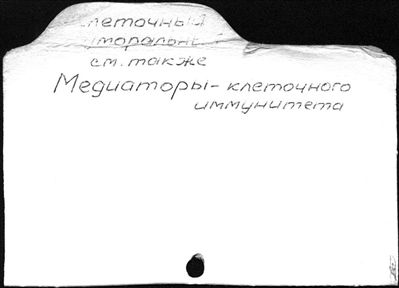 клеточный
гуморальный
см. также
Медиаторы - клеточного
иммунитета